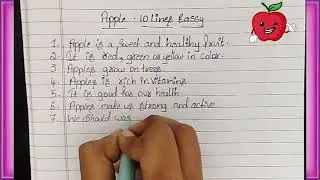 Apple - 10 Lines Eassy
1. Apple is a sweet and healthy fruit.
2. It is red, green or yellow in color.
3. Apples grow on trees.
4. Apples is rich in vitamins
5. It is good for our health.
6. Apples make us strong and active
7. We should was